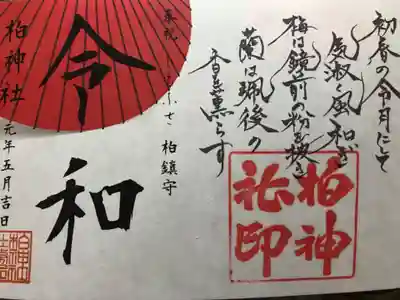 初春の令月にして
気淑く風和ぎ
梅は鏡前の粉を披き
蘭は珮後の
香を薫らす
奉祝
柏鎮守
令和
柏神社
元年五月吉日
柏神
社印